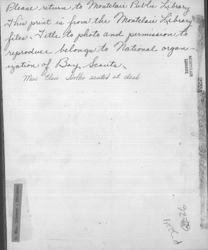 Please return to Montclair Public Library
This print is from the Montclair Library
files. Title to photo and permission to
reproduce belongs to National organ-
ization of Boy Scouts.
seated at desk